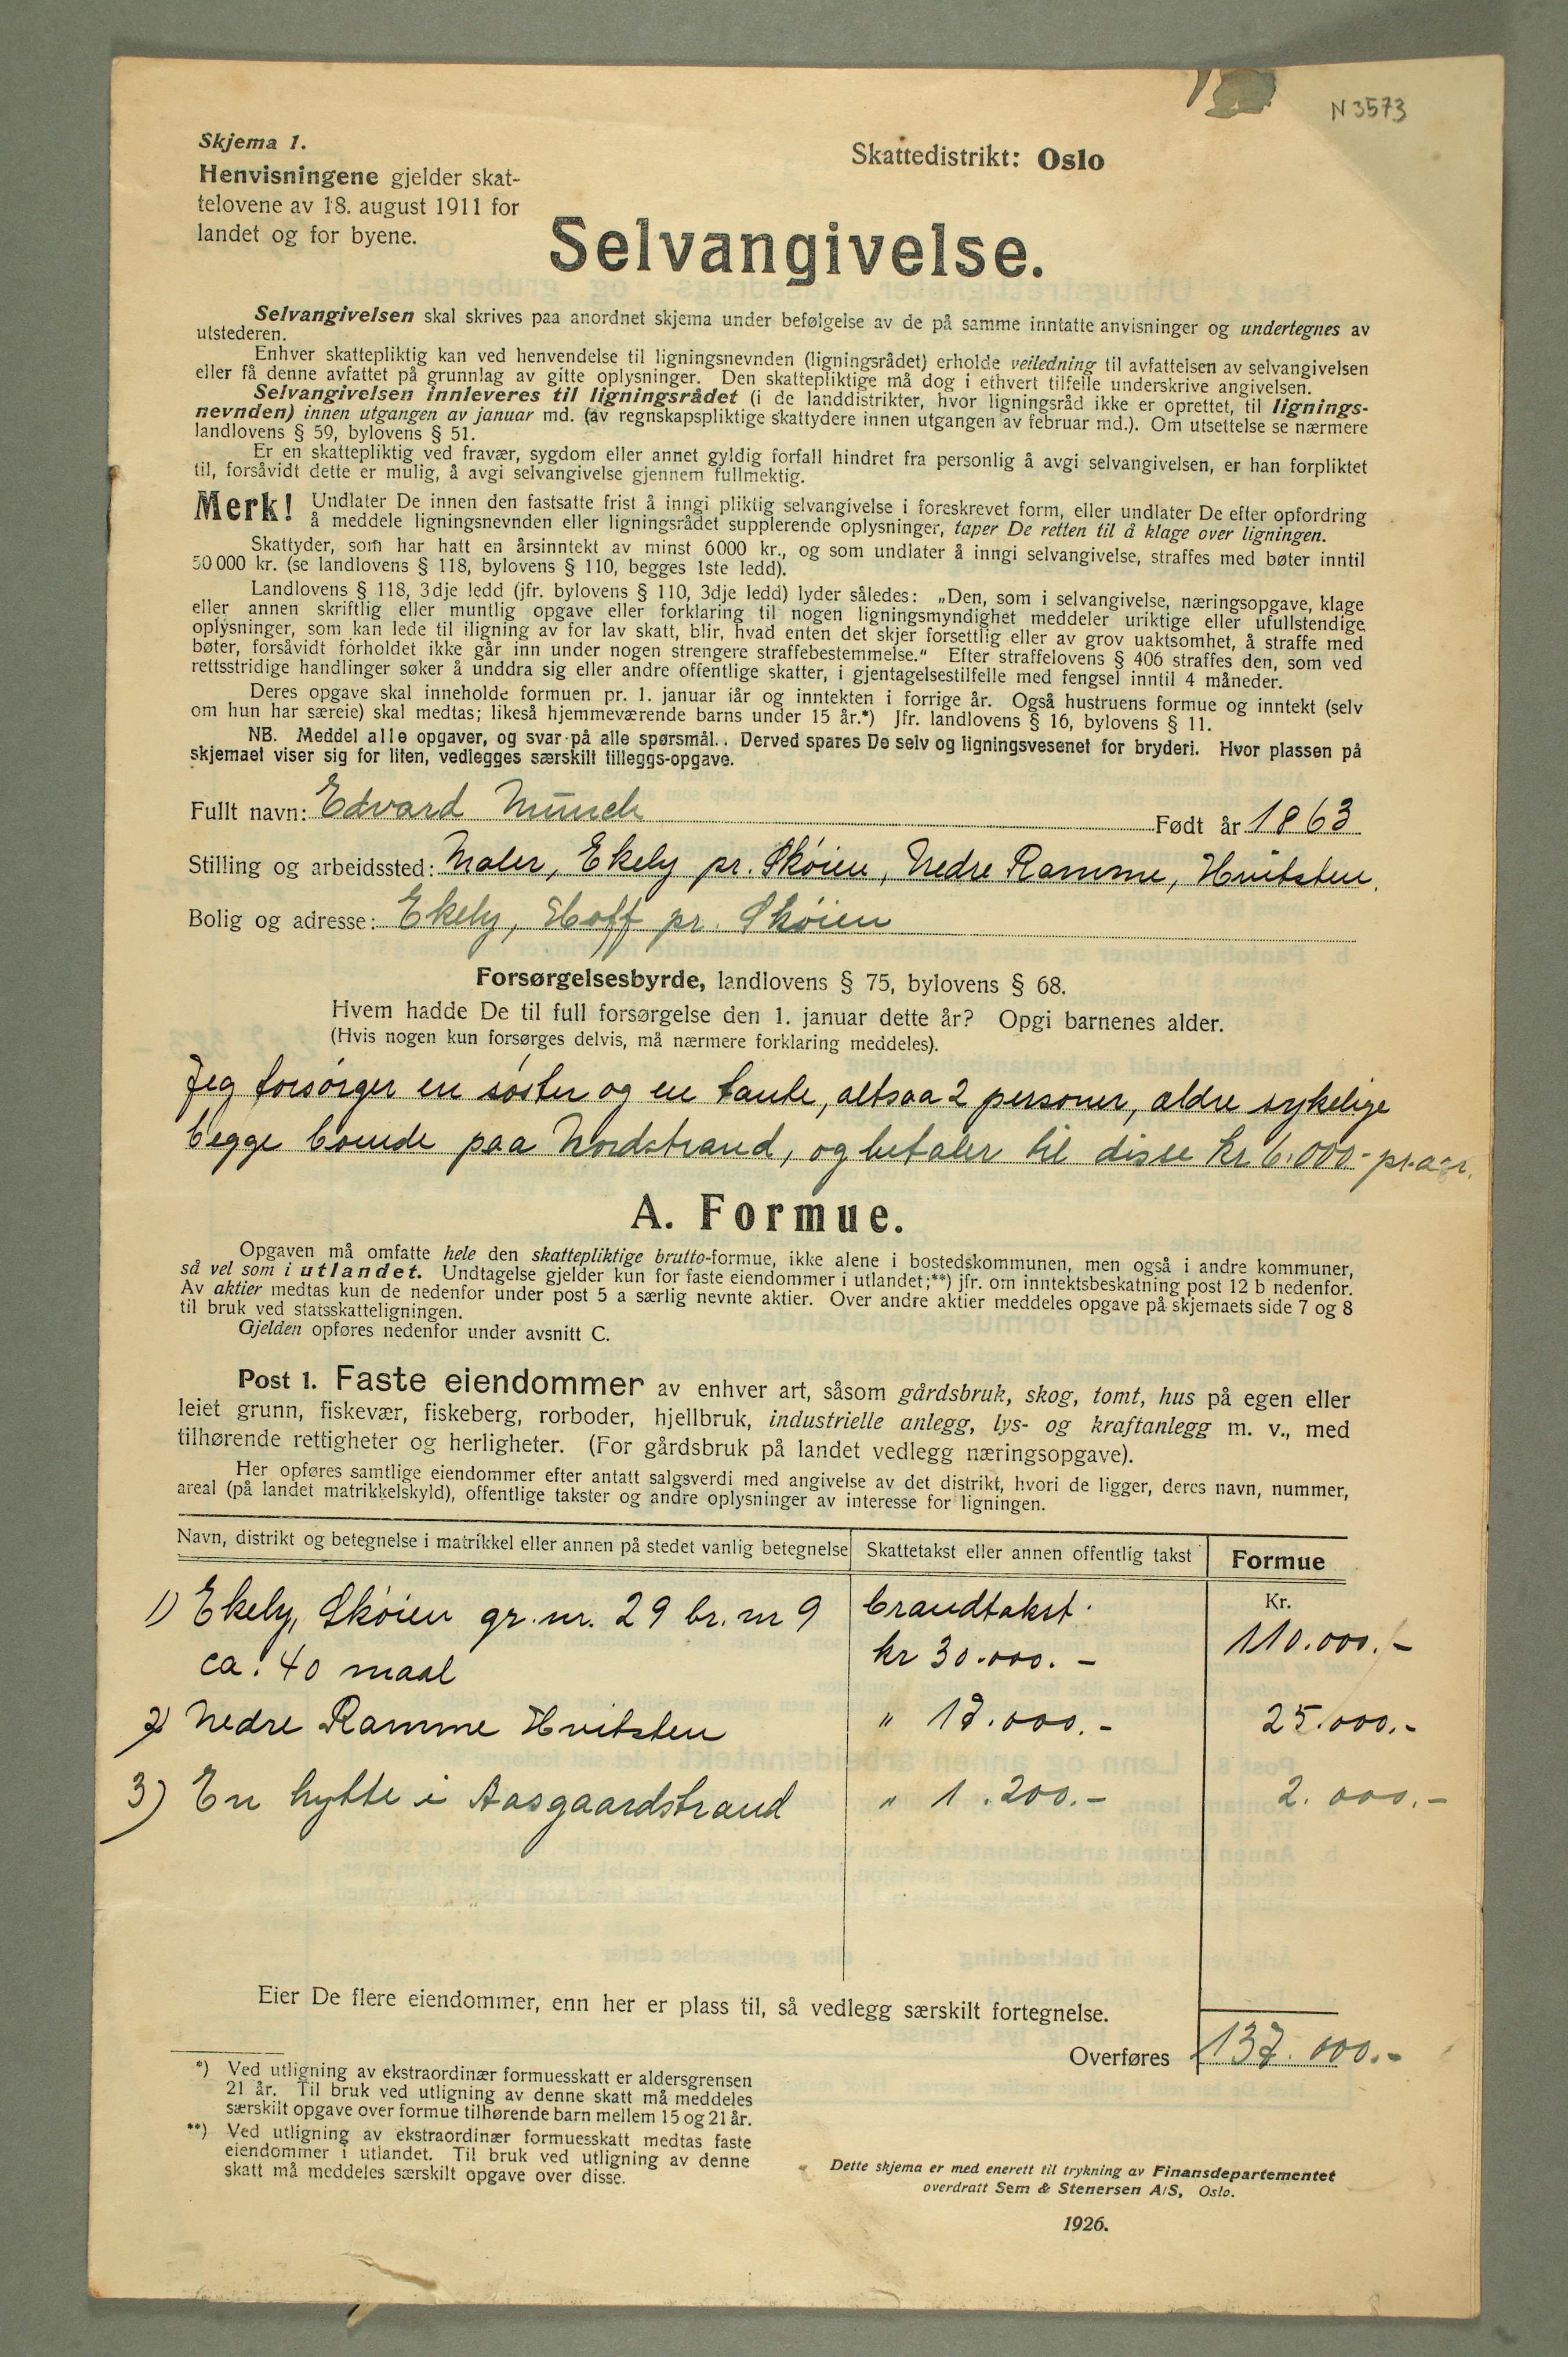 N 3573
Skjema 1.
Henvisningene gjelder skat-
telovene av 18. august 1911 for
landet og for byene.
Skattedistrikt: Oslo
Selvangivelse.
Selvangivelsen skal skrives paa anordnet skjema under befølgelse av de på samme inntatte anvisninger og undertegnes av
utstederen.
Enhver skattepliktig kan ved henvendelse til ligningsnevnden (ligningsrådet) erholde veiledning til avfattelsen av selvangivelsen
eller få denne avfattet på grunnlag av gitte oplysninger. Den skattepliktige må dog i ethvert tilfelle underskrive angivelsen.
Selvangivelsen innleveres til ligningsrådet (i de landdistrikter, hvor ligningsråd ikke er oprettet, til lignings-
nevnden) innen utgangen av januar md. (av regnskapspliktige skattydere innen utgangen av februar md.). Om utsettelse se nærmere
landlovens § 59, bylovens § 51.
Er en skattepliktig ved fravær, sygdom eller annet gyldig forfall hindret fra personlig å avgi selvangivelsen, er han forpliktet
til, forsåvidt dette er mulig, å avgi selvangivelse gjennem fullmektig.
Merk! Undlater De innen den fastsatte frist å inngi pliktig selvangivelse i foreskrevet form, eller undlater De efter opfordring
å meddele ligningsnevnden eller ligningsrådet supplerende oplysninger, taper De retten til å klage over ligningen.
Skattyder, som har hatt en årsinntekt av minst 6000 kr., og som undlater å inngi selvangivelse, straffes med bøter inntil
50 000 kr. (se landlovens § 118, bylovens § 110, begges 1ste ledd).
Landlovens § 118, 3dje ledd (jfr. bylovens § 110, 3dje ledd) lyder således: „Den, som i selvangivelse, næringsopgave, klage
eller annen skriftlig eller muntlig opgave eller forklaring til nogen ligningsmyndighet meddeler uriktige eller ufullstendige
oplysninger, som kan lede til iligning av for lav skatt, blir, hvad enten det skjer forsettlig eller av grov uaktsomhet, å straffe med
bøter, forsåvidt forholdet ikke går inn under nogen strengere straffebestemmelse.“ Efter straffelovens § 406 straffes den, som ved
rettsstridige handlinger søker å unddra sig eller andre offentlige skatter, i gjentagelsestilfelle med fengsel inntil 4 måneder.
Deres opgave skal inneholde formuen pr. 1. januar iår og inntekten i forrige år. Også hustruens formue og inntekt (selv
om hun har særeie) skal medtas; likeså hjemmeværende barns under 15 år.*) Jfr. landlovens § 16, bylovens § 11.
NB. Meddel alle opgaver, og svar på alle spørsmål. . Derved spares De selv og ligningsvesenet for bryderi. Hvor plassen på
skjemaet viser sig for liten, vedlegges særskilt tilleggs-opgave.
Fullt navn: Edvard Munch Født år 1863
Stilling og arbeidssted: Maler, Ekely pr. Sköien, Nedre Ramme, Hvitsten.
Bolig og adresse: Ekely, Hoff pr. Sköien
Forsørgelsesbyrde, landlovens § 75, bylovens § 68.
Hvem hadde De til full forsørgelse den 1. januar dette år? Opgi barnenes alder.
(Hvis nogen kun forsørges delvis, må nærmere forklaring meddeles).
Jeg forsörger en söster og en tante, altsaa 2 personer, ældre sykelige
begge boende paa Nordstrand, og betaler til disse kr 6.000.- pr. aar.
A. Formue.
Opgaven må omfatte hele den skattepliktige brutto-formue, ikke alene i bostedskommunen, men også i andre kommuner,
så vel som i utlandet. Undtagelse gjelder kun for faste eiendommer i utlandet;**) jfr. om inntektsbeskatning post 12 b nedenfor.
Av aktier medtas kun de nedenfor under post 5 a særlig nevnte aktier. Over andre aktier meddeles opgave på skjemaets side 7 og 8
til bruk ved statsskatteligningen.
Gjelden opføres nedenfor under avsnitt C.
Post 1. Faste eiendommer av enhver art, såsom gårdsbruk, skog, tomt, hus på egen eller
leiet grunn, fiskevær, fiskeberg, rorboder, hjellbruk, industrielle anlegg, lys- og kraftanlegg m. v., med
tilhørende rettigheter og herligheter. (For gårdsbruk på landet vedlegg næringsopgave).
Her opføres samtlige eiendommer efter antatt salgsverdi med angivelse av det distrikt, hvori de ligger, deres navn, nummer,
areal (på landet matrikkelskyld), offentlige takster og andre oplysninger av interesse for ligningen.
Navn, distrikt og betegnelse i matrikkel eller annen på stedet vanlig betegnelse Skattetakst eller annen offentlig takst Formue
Kr.
1) Ekely, Sköien gr. nr. 29 br. nr 9 brandtakst.
ca. 40 maal kr 30.000.- 110.000.-
2) Nedre Ramme Hvitsten " 17.000.- 25.000.-
3) En hytte i Aasgaardstrand " 1.200.- 2.000.-
Eier De flere eiendommer, enn her er plass til, så vedlegg særskilt fortegnelse.
Overføres 137.000.-
*) Ved utligning av ekstraordinær formuesskatt er aldersgrensen
21 år. Til bruk ved utligning av denne skatt må meddeles
særskilt opgave over formue tilhørende barn mellem 15 og 21 år.
**) Ved utligning av ekstraordinær formuesskatt medtas faste
eiendommer i utlandet. Til bruk ved utligning av denne
skatt må meddeles særskilt opgave over disse.
Dette skjema er med enerett til trykning av Finansdepartementet
overdratt Sem & Stenersen A/S, Oslo.
1926.